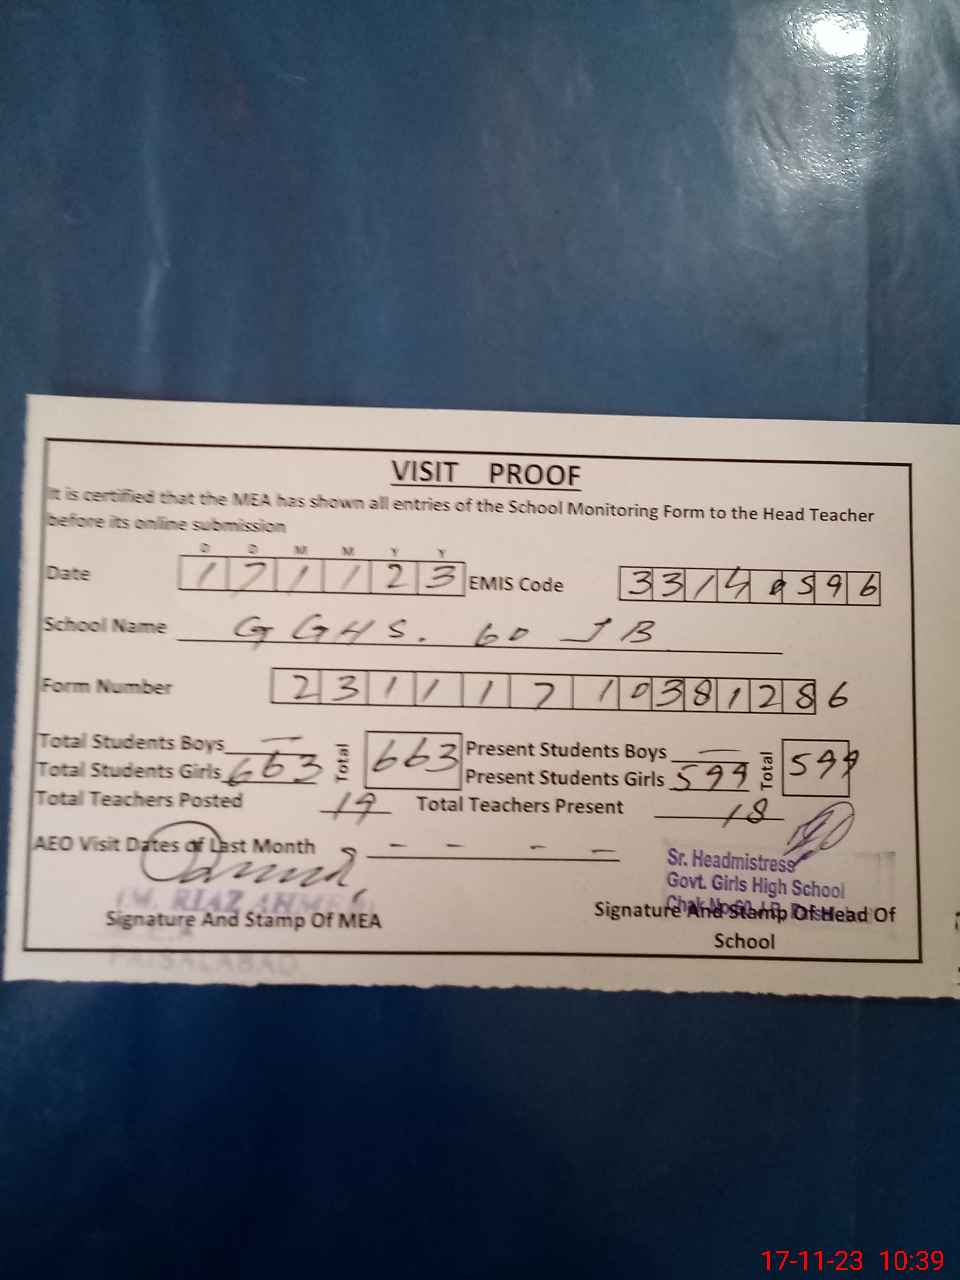 VISIT PROOF
It is certified that the MEA has shown all entries of the School Monitoring Form to the Head Teacher
before its online submission
D D M M Y Y
Date 1 7 1 1 2 3 EMIS Code 3 3 1 4 0 5 9 6
School Name GGHS. 60 JB
Form Number 2 3 1 1 1 7 1 0 3 8 1 2 8 6
Total Students Boys — Total 663 Present Students Boys — Total 599
Total Students Girls 663 Present Students Girls 599
Total Teachers Posted 19 Total Teachers Present 18
AEO Visit Dates of Last Month - - - -
Sr. Headmistress
Govt. Girls High School
Chak No. 60 J.B.
(M. RIAZ AHMED)
Signature And Stamp Of MEA
Signature And Stamp Of Head Of
School
FAISALABAD
17-11-23 10:39